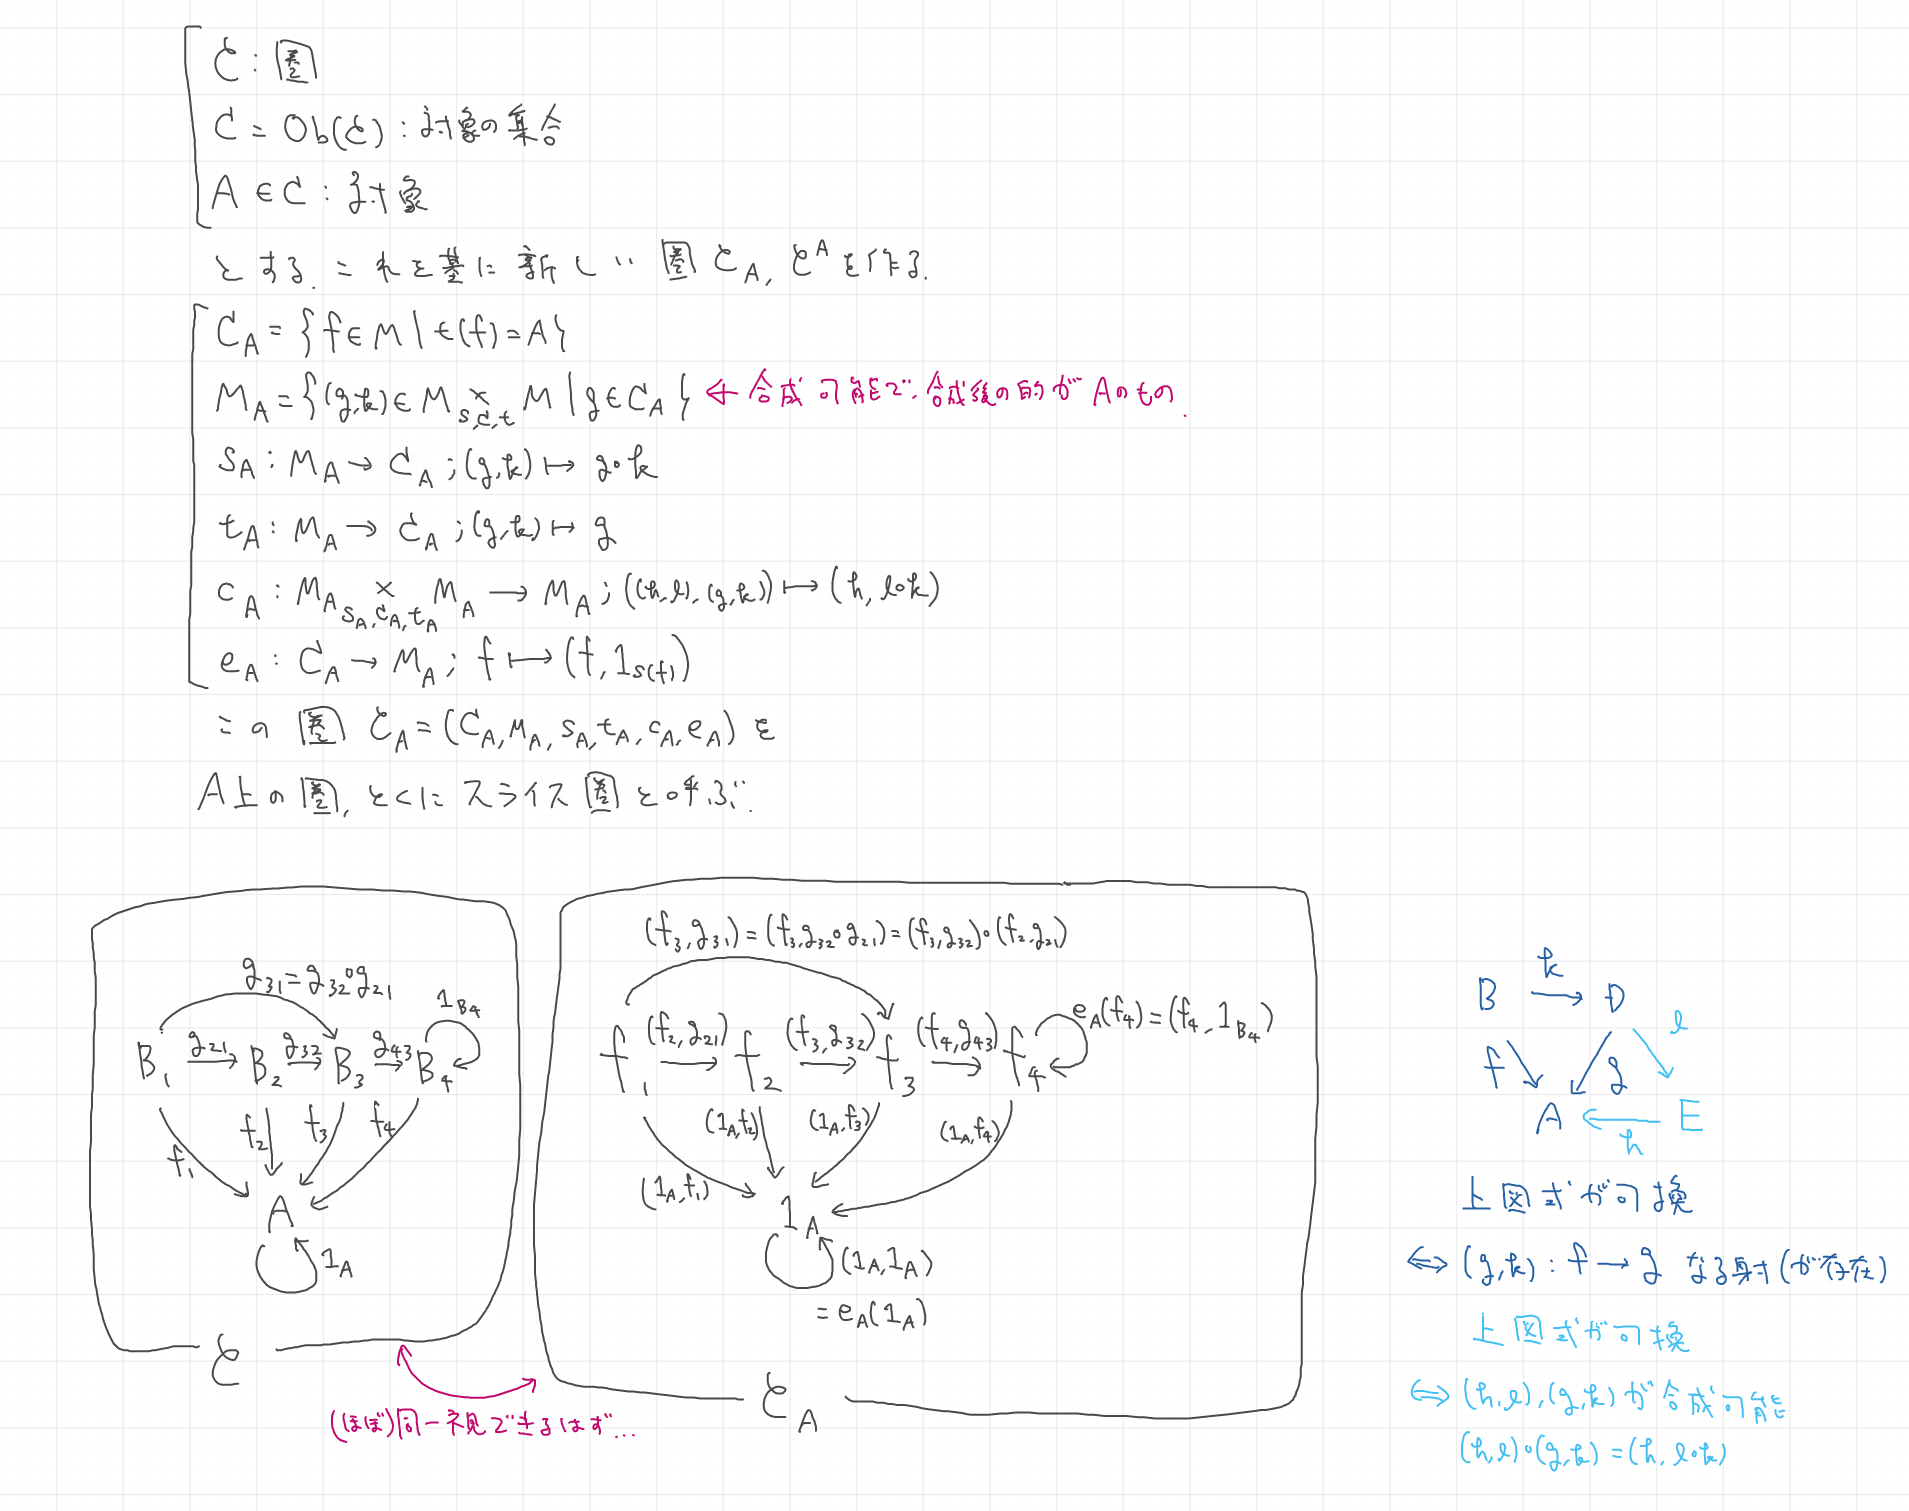 𝒞 : 圏
C = Ob(𝒞) : 対象の集合
A ∈ C : 対象
とする. これを基に新しい圏 𝒞_A, 𝒞^A を作る.
C_A = {f ∈ M | t(f) = A}
M_A = {(g,k) ∈ M ×_{s,C,t} M | g ∈ C_A} ← 合成可能で、合成後の的がAのもの.
s_A : M_A → C_A ; (g,k) ↦ g∘k
t_A : M_A → C_A ; (g,k) ↦ g
c_A : M_A ×_{s_A,C_A,t_A} M_A → M_A ; ((h,l),(g,k)) ↦ (h, l∘k)
e_A : C_A → M_A ; f ↦ (f, 1_{s(f)})
この圏 𝒞_A = (C_A, M_A, s_A, t_A, c_A, e_A) を
A上の圏, とくにスライス圏と呼ぶ.
g_{31} = g_{32}∘g_{21}
1_{B_4}
B_1 g_{21}→ B_2 g_{32}→ B_3 g_{43}→ B_4
f_1 f_2 f_3 f_4
A
1_A
𝒞
(f_3, g_{31}) = (f_3, g_{32}∘g_{21}) = (f_3, g_{32})∘(f_2, g_{21})
f_1 (f_2, g_{21})→ f_2 (f_3, g_{32})→ f_3 (f_4, g_{43})→ f_4
e_A(f_4) = (f_4, 1_{B_4})
(1_A, f_1) (1_A, f_2) (1_A, f_3) (1_A, f_4)
1_A
(1_A, 1_A)
= e_A(1_A)
𝒞_A
(ほぼ)同一視できるはず...
B k→ D
f g l
A ←h E
上図式が可換
⇔ (g,k) : f → g なる射(が存在)
上図式が可換
⇔ (h,l),(g,k)が合成可能
(h,l)∘(g,k) = (h, l∘k)